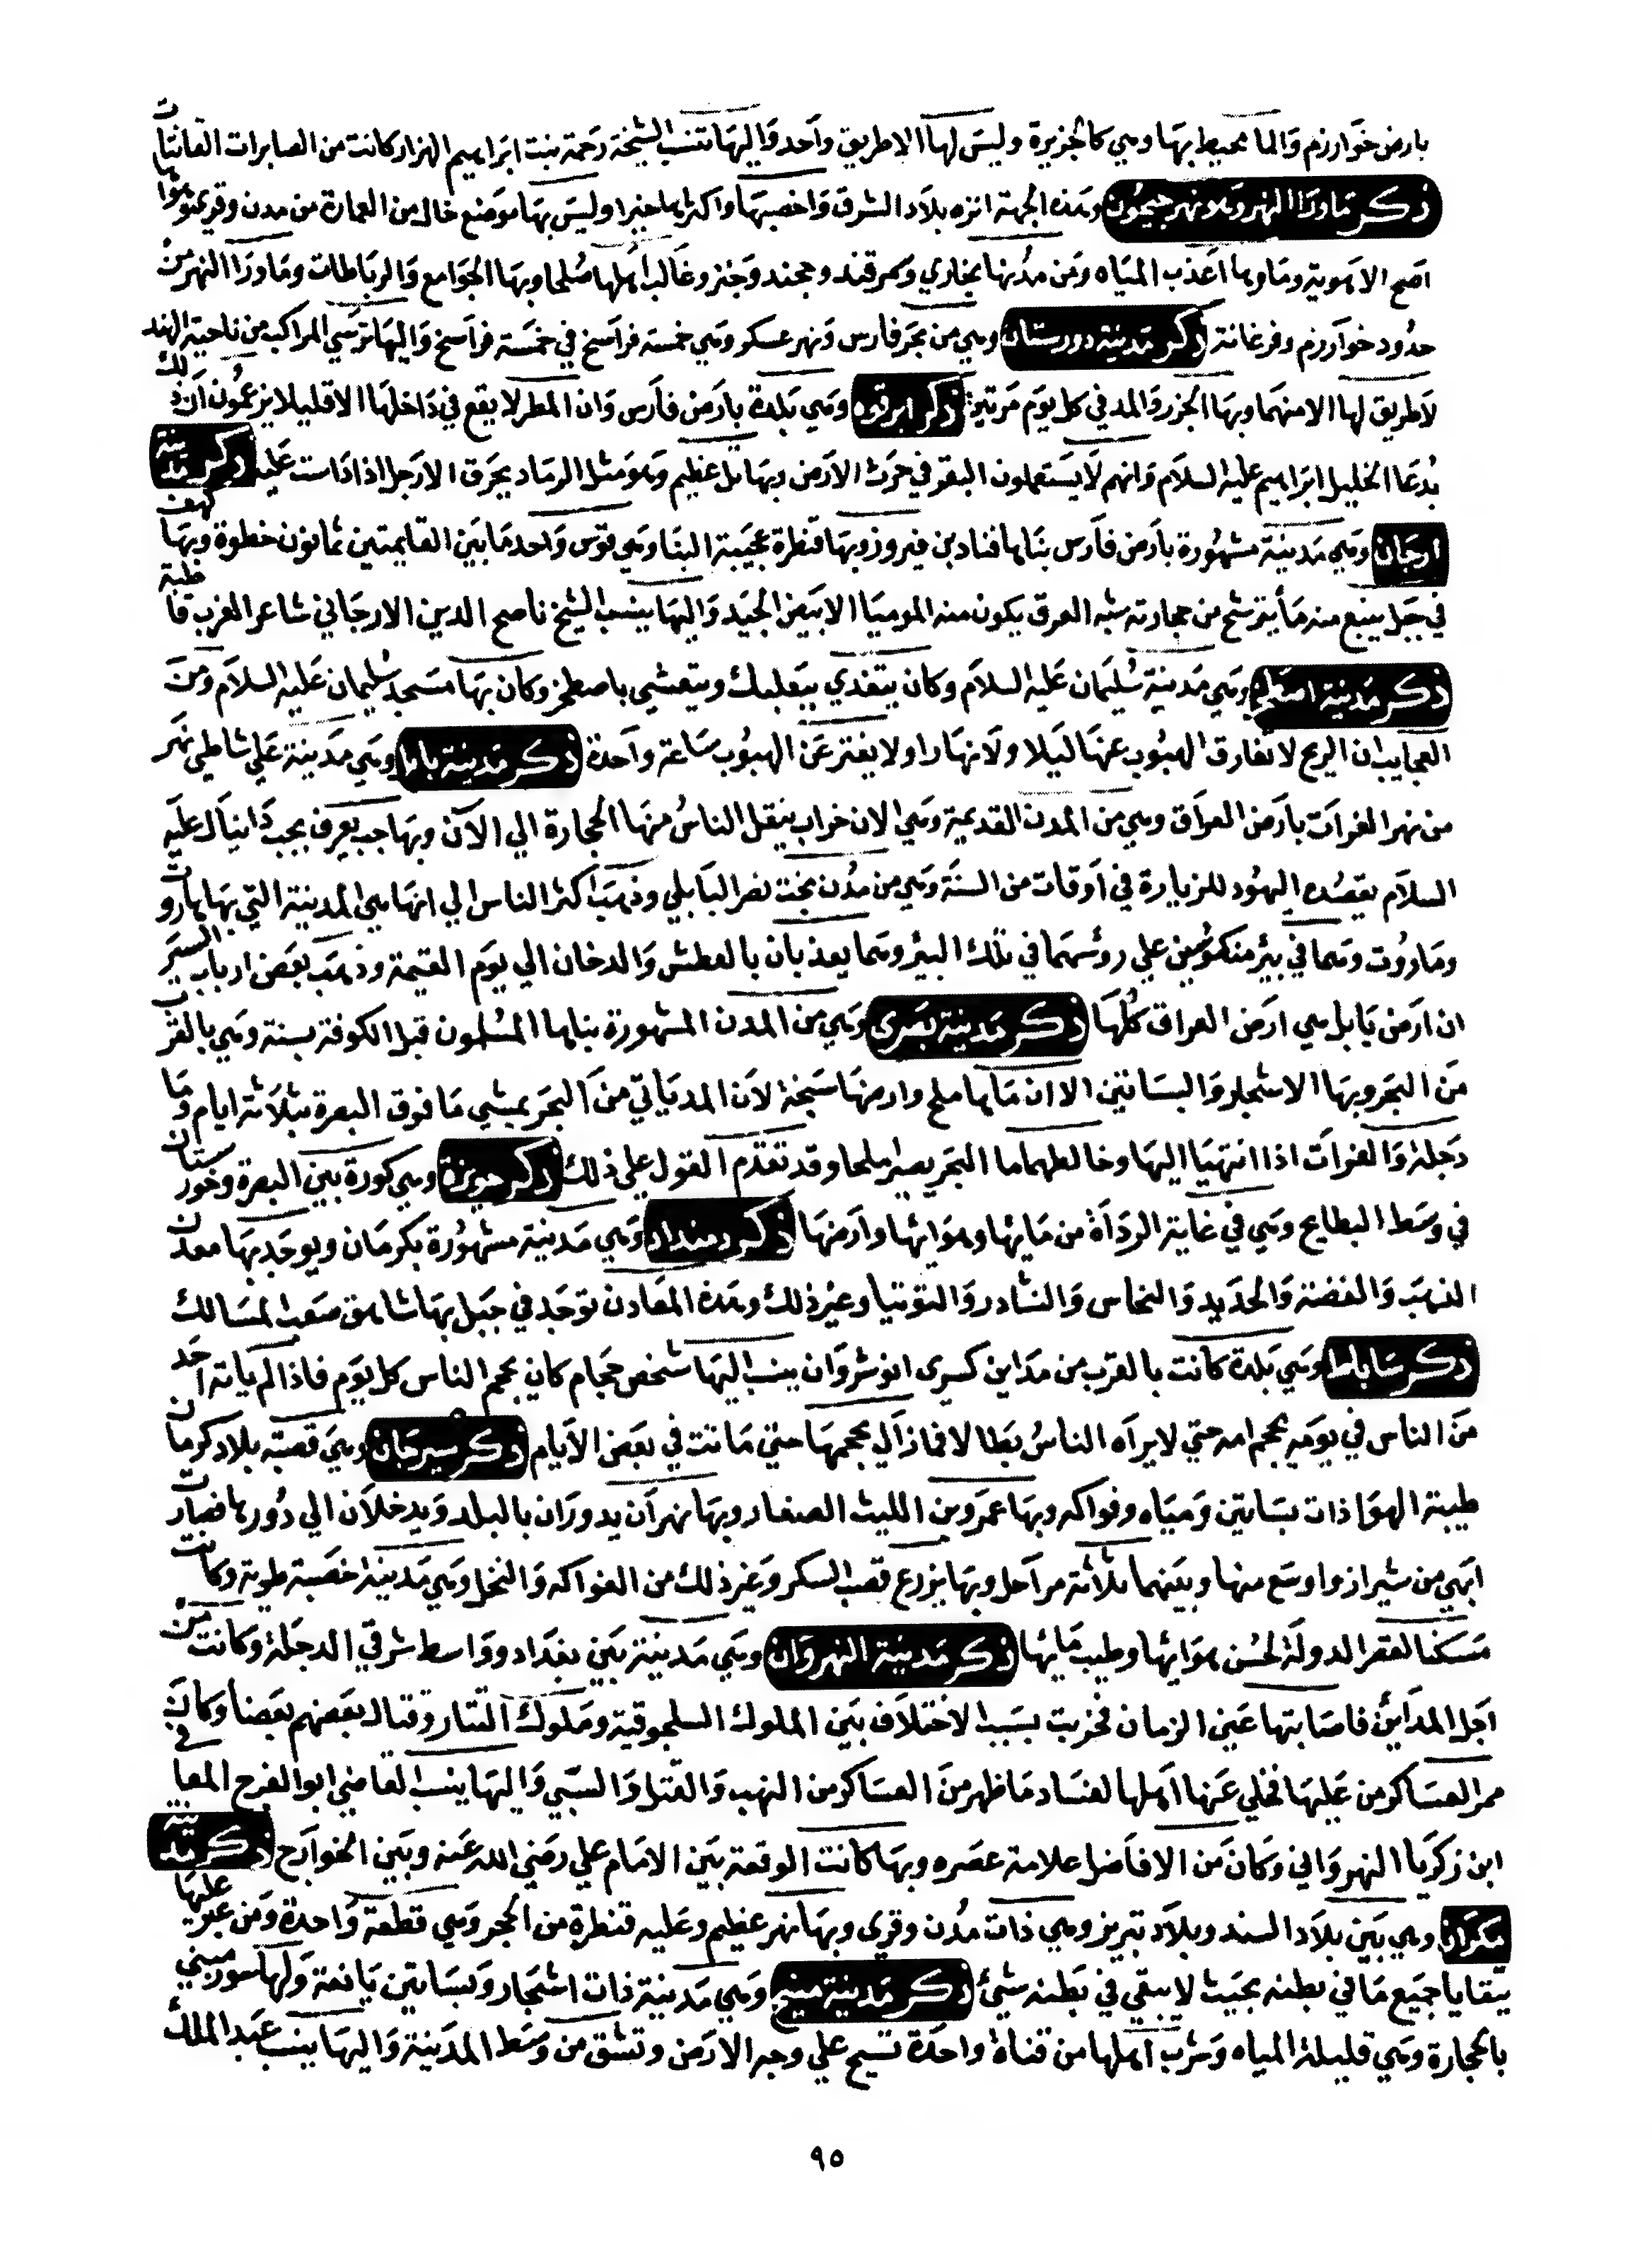 بارض خوارزم والما محيط بها وهي كالجزيرة وليس لها الا طريق واحد واليها تنسب الشيخة رحمة بنت ابراهيم الهزار كانت من الصابرات القانتات
ذكر ماورا النهر وهو نهر جيحون وهذه الجهة انزه بلاد الشرق واخصبها واكثرها خيرا وليس بها موضع خال من العمارة من مدن وقري هواها
اصح الاهوية وماوها اعذب المياه ومن مدنها بخاري وسمرقند وخجند وجنز وغالب اهلها صلحا وبها الجوامع والرباطات وماورا النهر من
حدود خوارزم وفرغانة ذكر مدينة دورستان وهي من بحر فارس ونهر عسكر وهي خمسة فراسخ في خمسة فراسخ واليها ترسي المراكب من ناحية الهند
لا طريق لها الا منهما وبها الجزر والمد في كل يوم مرتين ذكر ابرقوه وهي بلدة بارض فارس وان المطر لا يقع في داخلها الا قليلا يزعمون ان ذلك
بدعا الخليل ابراهيم عليه السلام وانهم لا يستعملون البقر في حرث الارض وبها تل عظيم وهو مثل الرماد يحرق الارجل اذا داست عليه ذكر مدينة
ارجان وهي مدينة مشهورة بارض فارس بناها قناد بن فيروز وبها قنطرة عجيبة البنا وهي قوس واحد مابين القايمتين ثمانون خطوة وبها كهف
في جبل ينبع منه ما يترشح من حجارته شبه العرق يكون منه الموميا الابيض الجيد واليها ينسب الشيخ ناصح الدين الارجاني شاعر الغرب قاطبة
ذكر مدينة اصطخر وهي مدينة سليمان عليه السلام وكان يتغدي ببعلبك ويتعشي باصطخر وكان بها مسجد سليمان عليه السلام ومن
العجايب ان الريح لا تفارق الهبوب عنها ليلا ولا نهارا ولا يفتر عن الهبوب ساعة واحدة ذكر مدينة بابل وهي مدينة علي شاطي نهر
من نهر الفرات بارض العراق وهي من المدن القديمة وهي الان خراب ينقل الناس منها الحجارة الي الآن وبها جب يعرف بجب دانيال عليه
السلام يقصده اليهود للزيارة في اوقات من السنة وهي من مدن بخت نصر البابلي وذهب اكثر الناس الي انها هي المدينة التي بها هاروت
وماروت وهما في بير منكوسين علي رؤسهما في تلك البير وهما يعذبان بالعطش والدخان الي يوم القيمة وذهب بعض ارباب السير
ان ارض بابل هي ارض العراق كلها ذكر مدينة بصرى وهي من المدن المشهورة بناها المسلمون قبل الكوفة بسنة وهي بالقرب
من البحر وبها الاشجار والبساتين الا ان ماها ملح وارضها سبخة لان المد ياتي من البحر بمشي ما فوق البصرة بثلاثة ايام وما
دجلة والفرات اذا انتهيا اليها وخالطهما ما البحر يصير ملحا وقد تقدم القول علي ذلك ذكر حويزة وهي كورة بين البصرة وخورستان
في وسط البطايح وهي في غاية الرداة من مائها وهوائها وارضها ذكر دمندان وهي مدينة مشهورة بكرمان ويوجد بها معدن
الذهب والفضة والحديد والنحاس والنشادر والتوتيا وغير ذلك وهذه المعادن توجد في جبل بها شاهق صعب المسالك
ذكر ساباط وهي بلدة كانت بالقرب من مداين كسرى انوشروان ينسب اليها شخص حجام كان يحجم الناس كل يوم فاذا لم ياته احد
من الناس في يومه يحجم امه حتي لا يراه الناس بطالا فما زال يحجمها حتي ماتت في بعض الايام ذكر سيرجان وهي قصبة بلاد كرمان
طيبة الهوا ذات بساتين ومياه وفواكه وبها عمر وبن الليث الصفار وبها نهران يدوران بالبلد ويدخلان الي دورها فصارت
ابهي من شيراز واوسع منها وبينهما ثلاثة مراحل وبها يزرع قصب السكر وغير ذلك من الفواكه والنخل وهي مدينة خصبة طوبة وكانت
مسكنا لعقر الدولة لحسن هوائها وطيب مائها ذكر مدينة النهروان وهي مدينة بين بغداد وواسط شرقي الدجلة وكانت من
اجل المداين فاصابتها عين الزمان فخربت بسبب الاختلاف بين الملوك السلجوقية وملوك التتار وقتال بعضهم بعضا وكان في
ممر العساكر من عليها فخلي عنها اهلها لفساد ما ظهر من العساكر من النهب والقتل والسبي واليها ينسب القاضي ابو الفرج المعا
ابن زكريا النهرواني وكان من الافاضل علامة عصره وبها كانت الوقعة بين الامام علي رضي الله عنه وبين الخوارج ذكر مدينة
مكران وهي بين بلاد السند وبلاد تبريز وهي ذات مدن وقري وبها نهر عظيم وعليه قنطرة من الحجر وهي قطعة واحدة ومن عبر عليها
يتقايا جميع ما في بطنه بحيث لا يبقي في بطنه شئ ذكر مدينة منبج وهي مدينة ذات اشجار وبساتين يانعة ولها سور مبني
بالحجارة وهي قليلة المياه وشرب اهلها من قناة واحدة تسيح علي وجه الارض وتشق من وسط المدينة واليها ينسب عبد الملك
٩٥